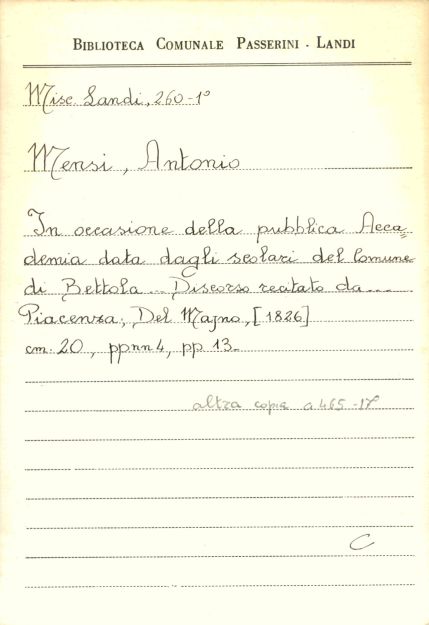 BIBLIOTECA COMUNALE PASSERINI - LANDI
Misc. Landi, 260-1°
Mensi, Antonio
In occasione della pubblica Acca=
demia data dagli scolari del Comune
di Bettola... Discorso recitato da...
Piacenza, Del Majno, [1826]
cm. 20, ppnn 4, pp 13-
altra copia a 465-17
C